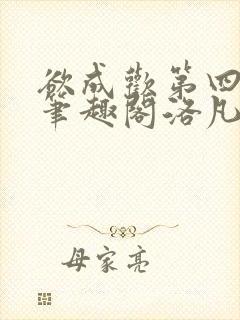 欲成欢第四
笔趣阁洛凡
母家亮